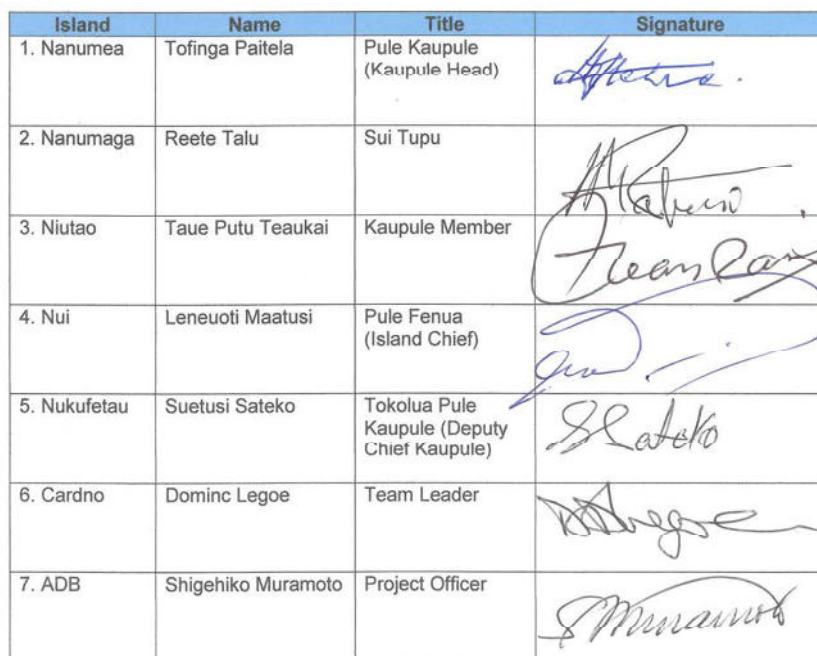 Island Name Title Signature
1. Nanumea Tofinga Paitela Pule Kaupule
(Kaupule Head)
2. Nanumaga Reete Talu Sui Tupu
3. Niutao Taue Putu Teaukai Kaupule Member
4. Nui Leneuoti Maatusi Pule Fenua
(Island Chief)
5. Nukufetau Suetusi Sateko Tokolua Pule SSateko
Kaupule (Deputy
Chief Kaupule)
6. Cardno Dominc Legoe Team Leader
7. ADB Shigehiko Muramoto Project Officer